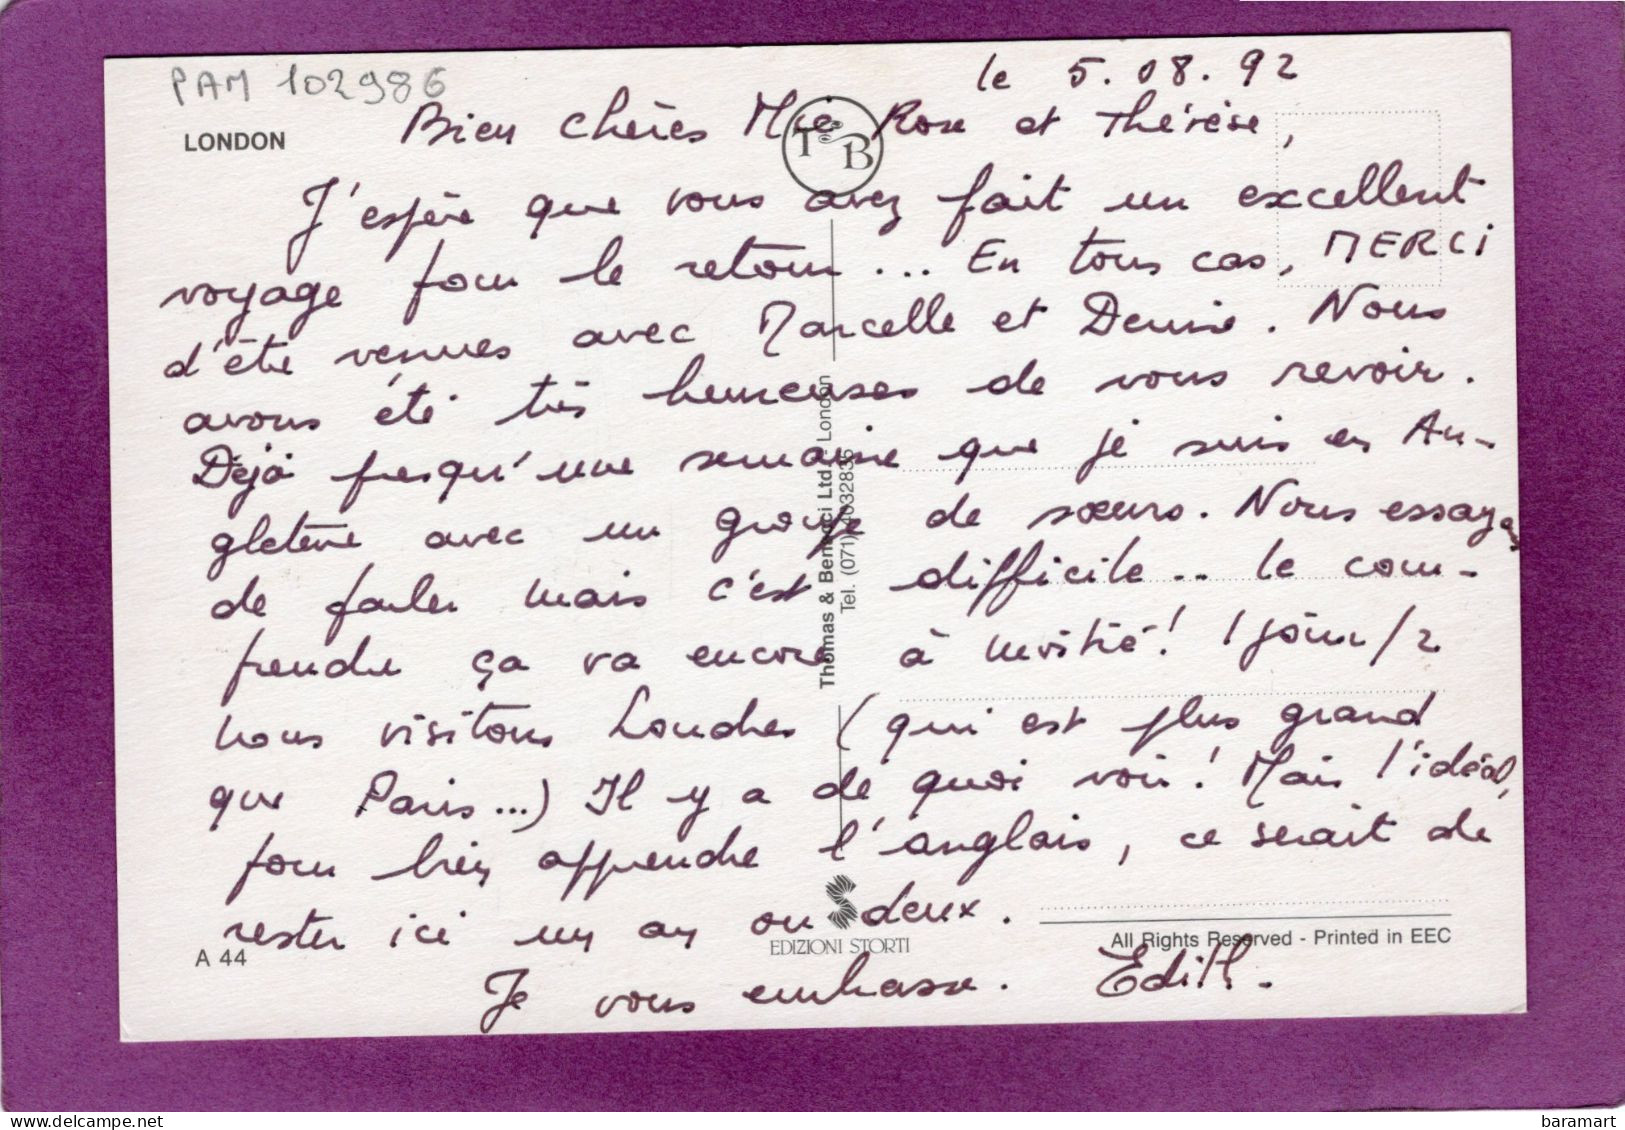 PAM 102986
le 5.08.92
LONDON
Bien chères Mie Rose et Thérèse,
T B
J'espère que vous avez fait un excellent
voyage pour le retour... En tous cas, MERCI
d'être venues avec Marcelle et Denise. Nous
avons été très heureuses de vous revoir.
Déjà presqu'une semaine que je suis en An-
gleterre avec un groupe de sœurs. Nous essayons
de parler mais c'est difficile.. le com-
prendre ça va encore à moitié! 1 jour/2
nous visitons Londres (qui est plus grand
que Paris...) Il y a de quoi voir! Mais l'idéal,
pour bien apprendre l'anglais, ce serait de
rester ici un an ou deux.
Je vous embrasse. Edith.
Thomas & Benacci Ltd London
Tel. (071) 4032835
EDIZIONI STORTI
All Rights Reserved - Printed in EEC
A 44
delcampe.net
baramart